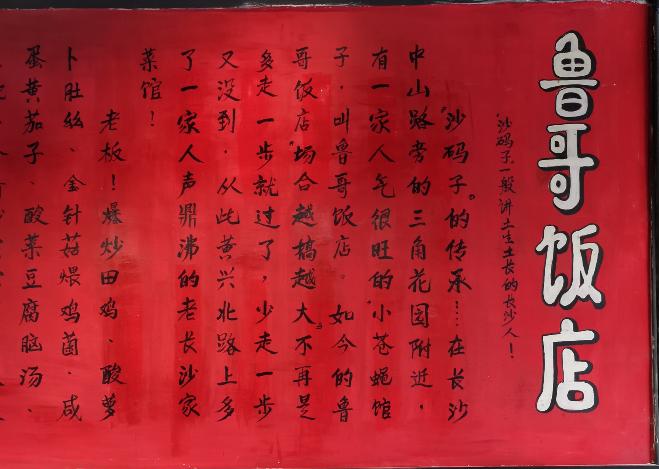 鲁哥饭店
"沙码子一般讲土生土长的长沙人!
"沙码子"的传承!…在长沙
中山路旁的三角花园附近,
有一家人气很旺的"小苍蝇馆
子,叫鲁哥饭店。如今的鲁
哥饭店"场合越搞越大"不再是
多走一步就过了,少走一步
又没到.从此黄兴北路上多
了一家人声鼎沸的老长沙家
菜馆!
老板!爆炒田鸡、酸萝
卜肚丝、金针菇煨鸡菌.咸
蛋黄茄子、酸菜豆腐脑汤、